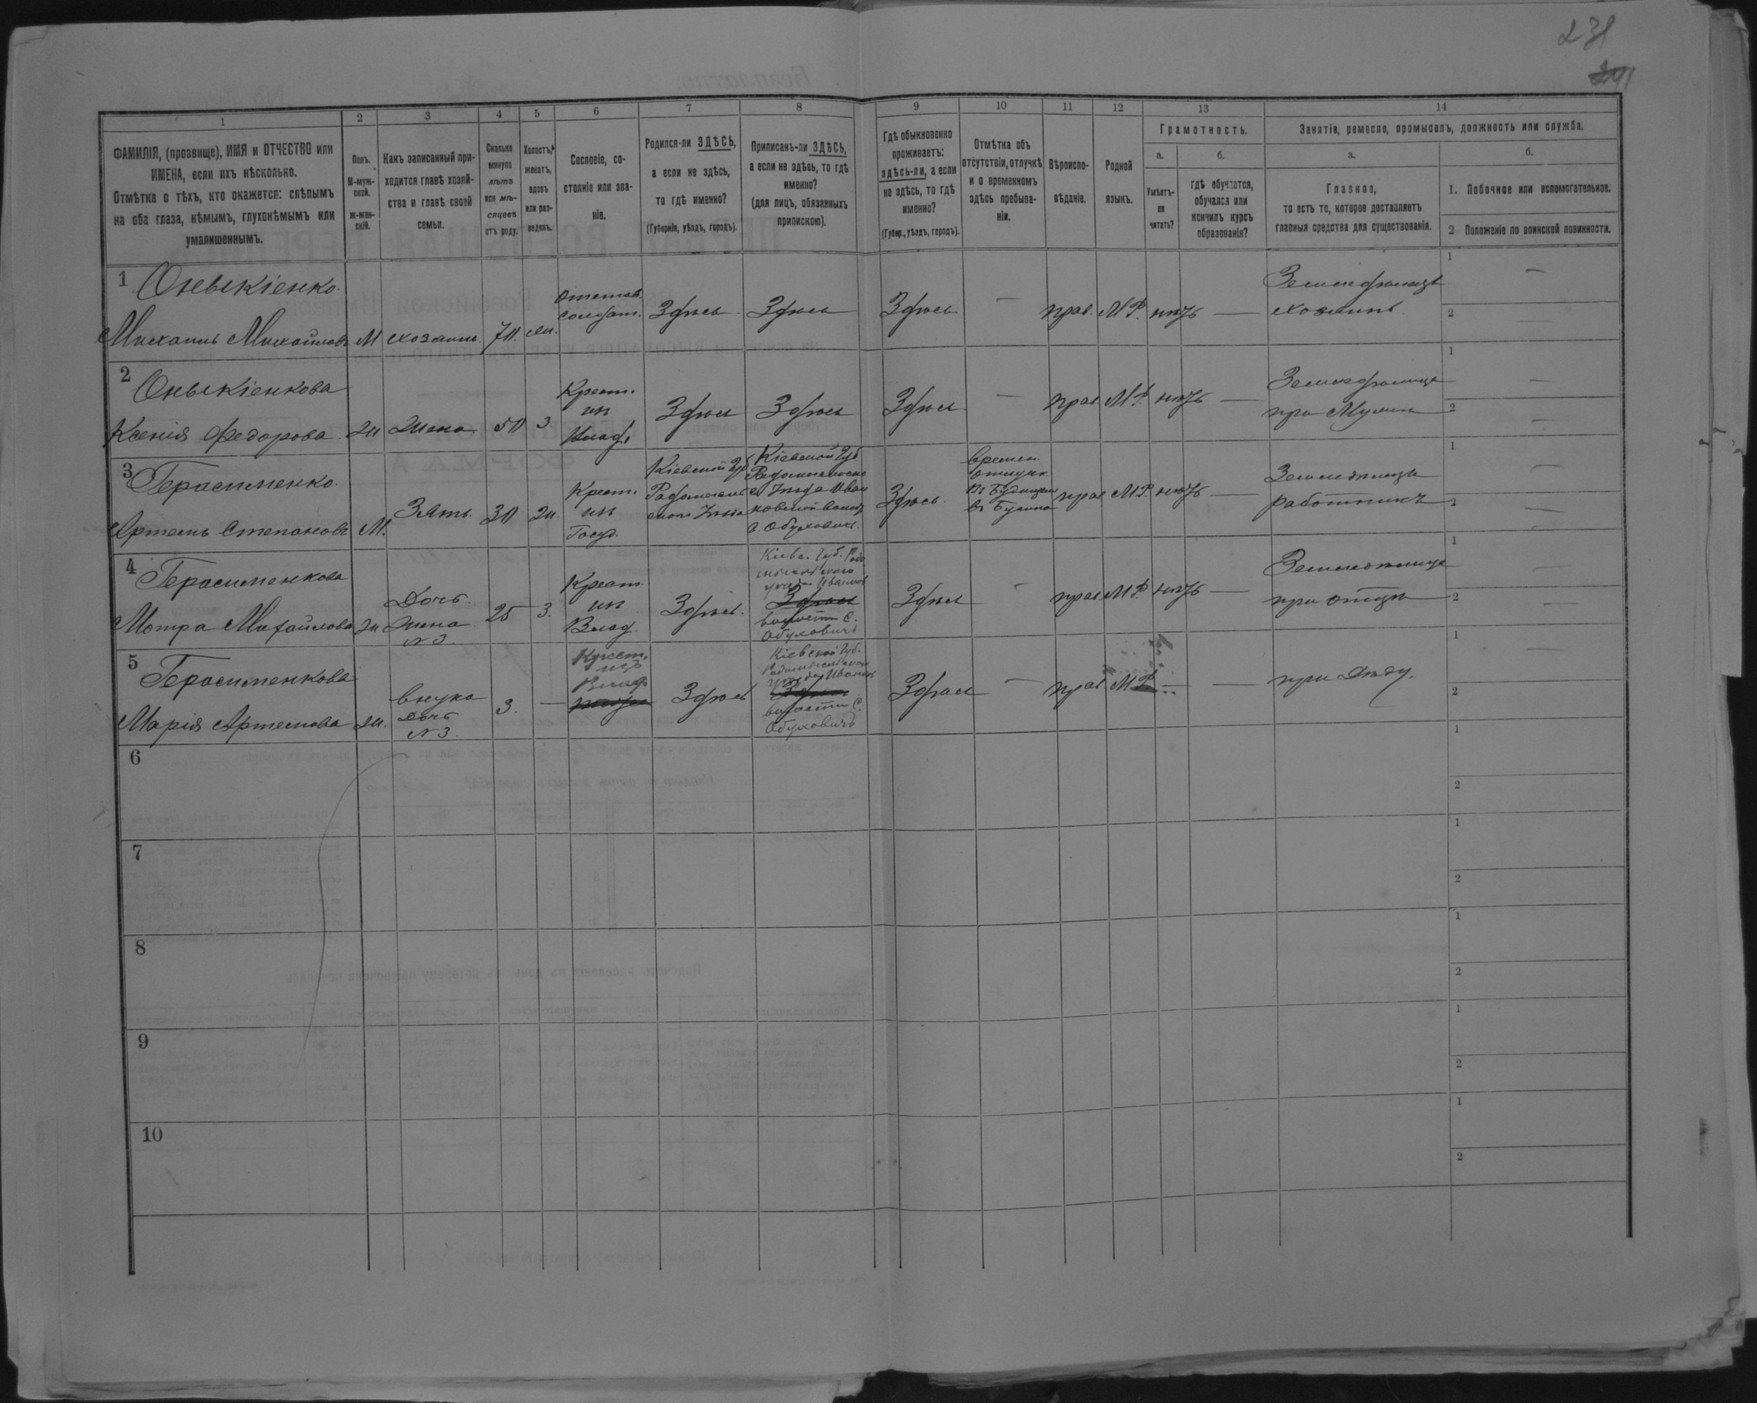 231
1 2 3 4 5 6 7 8 9 10 11 12 13 14
ФАМИЛІЯ, (прозвище), ИМЯ и ОТЧЕСТВО или
ИМЕНА, если ихъ нѣсколько.
Отмѣтка о тѣхъ, кто окажется: слѣпымъ
на оба глаза, нѣмымъ, глухонѣмымъ или
умалишеннымъ.
Полъ.
М-муж-
ской.
ж-жен-
скій.
Какъ записанный при-
ходится главѣ хозяй-
ства и главѣ своей
семьи.
Сколько
минуло
лѣтъ
или мѣ-
сяцевъ
отъ роду.
Холостъ,
женатъ,
вдовъ
или раз-
веденъ.
Сословіе, со-
стояніе или зва-
ніе.
Родился-ли ЗДѢСЬ,
а если не здѣсь,
то гдѣ именно?
(Губернія, уѣздъ, городъ).
Приписанъ-ли ЗДѢСЬ,
а если не здѣсь, то гдѣ
именно?
(для лицъ, обязанныхъ
припискою).
Гдѣ обыкновенно
проживаетъ:
здѣсь-ли, а если
не здѣсь, то гдѣ
именно?
(Губер., уѣздъ, городъ).
Отмѣтка объ
отсутствіи, отлучкѣ
и о временномъ
здѣсь пребыва-
ніи.
Вѣроиспо-
вѣданіе.
Родной
языкъ.
Грамотность.
а.
Умѣетъ-
ли
читать?
б.
гдѣ обучается,
обучался или
кончилъ курсъ
образованія?
Занятія, ремесло, промыселъ, должность или служба.
а.
Главное,
то есть то, которое доставляетъ
главныя средства для существованія.
б.
1. Побочное или вспомогательное.
2 Положеніе по воинской повинности.
1 Оныкіенко
Михаилъ Михайловъ М хозяинъ 70 жи.
отстав.
солдат.
Здѣсь Здѣсь Здѣсь — прав. М Р. нѣтъ —
Земледѣлецъ
хозяинъ
1 —
2
2 Оныкіенкова
Ксенія Федорова ж жена 50 з.
Крест.
из
Влад.
Здѣсь Здѣсь Здѣсь — прав М Р. нѣтъ —
Земледѣлица
при Мужи
1 —
2 —
3 Герасименко
Артемъ Степановъ М. Зять 30 ж.
Крест.
из
Госуд.
Кіевской Губ
Радомысль
скаго Уезда
Кіевской Губ
Радомысльска
го Уезда Иван
ковской волос
с Обуховичъ
Здѣсь
времен
отлучк
прав М Р. нѣтъ —
Земледѣлецъ
работникъ
1 —
2 —
4 Герасименкова
Мотра Михайлова ж
Дочь.
Жена
N 3
25 з.
Крест.
из
Влад.
Здѣсь
Кіевс. Губ. Радо
мысльскаго
уезда Иванков
Здѣсь
волости С.
Обуховичъ
Здѣсь — прав М Р. нѣтъ —
Земледѣлица
при отцѣ
1 —
2 —
5 Герасименкова
Марія Артемова ж.
внука
Дочь
N 3.
3. —
Крест.
изъ
Влад.
Здѣсь
Кіевской Губ.
Радомысльскаго
уезда Иванков
Здѣсь
волости С.
Обуховичъ
Здѣсь — прав М Р. — —
при Дѣду.
1
2
6
1
2
7
1
2
8
1
2
9
1
2
10
1
2